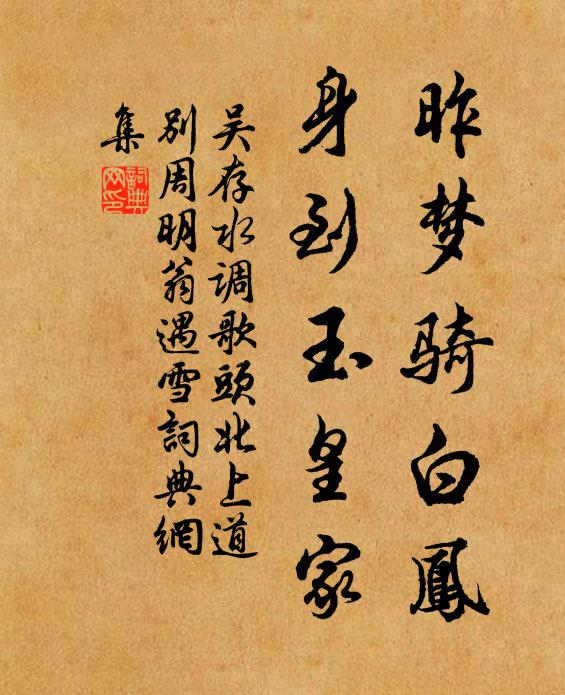 昨梦骑白鳳
身到玉皇家
吴存水调歌頭北上道
别周明翁遇雪詞典網
集
詞典
网印